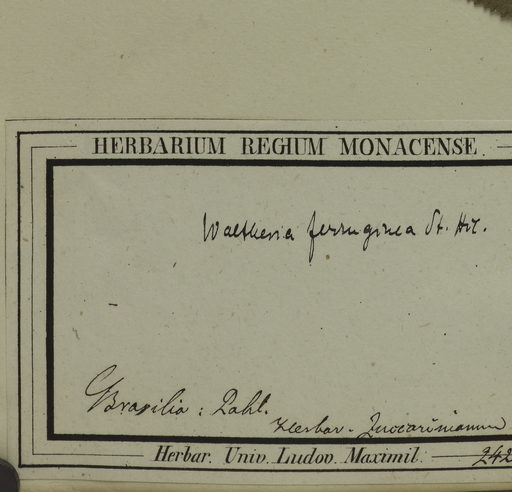 HERBARIUM REGIUM MONACENSE.
Waltheria ferruginea St. Hil.
Brasilia: Pohl.
Herbar. Zuccarinianum
Herbar. Univ. Ludov. Maximil.
242